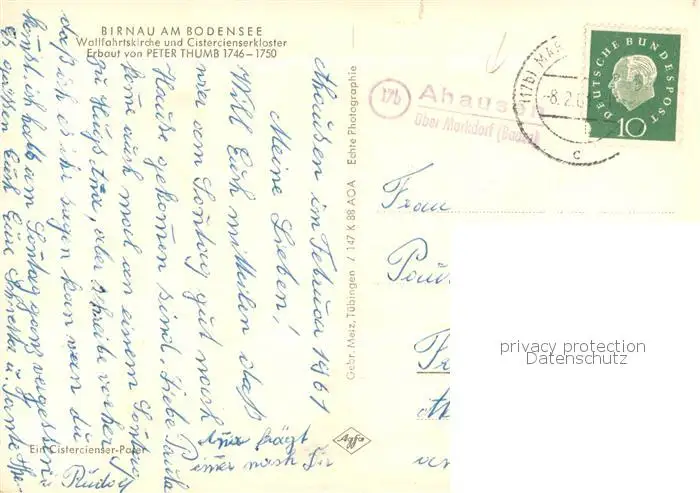 BIRNAU AM BODENSEE
Wallfahrtskirche und Cistercienserkloster
Erbaut von PETER THUMB 1746–1750
Ahausen im Februar 1961
Meine Lieben!
Will Euch mitteilen daß
wir am Sontag gut nach
Hause gekomen sind. Liebe Paula
kome auch mal an einem Sontag
zu Hugs Ana, aber schreibe vorher
daß ich es ihr sagen kann wen du
komst. ich hab am Sontag ganz vergessen
Es grüßen Euch Eure u. Tante
Rudolf
Ana frägt
imer nach Dir
Ein Cistercienser-Pater
Gebr. Metz, Tübingen / 147 K 88 AOA Echte Photographie
Agfa
17b
Ahausen
über Markdorf (Baden)
(17b) MAR
-8.2.6
c
DEUTSCHE BUNDESPOST
10
Frau
privacy protection
Datenschutz